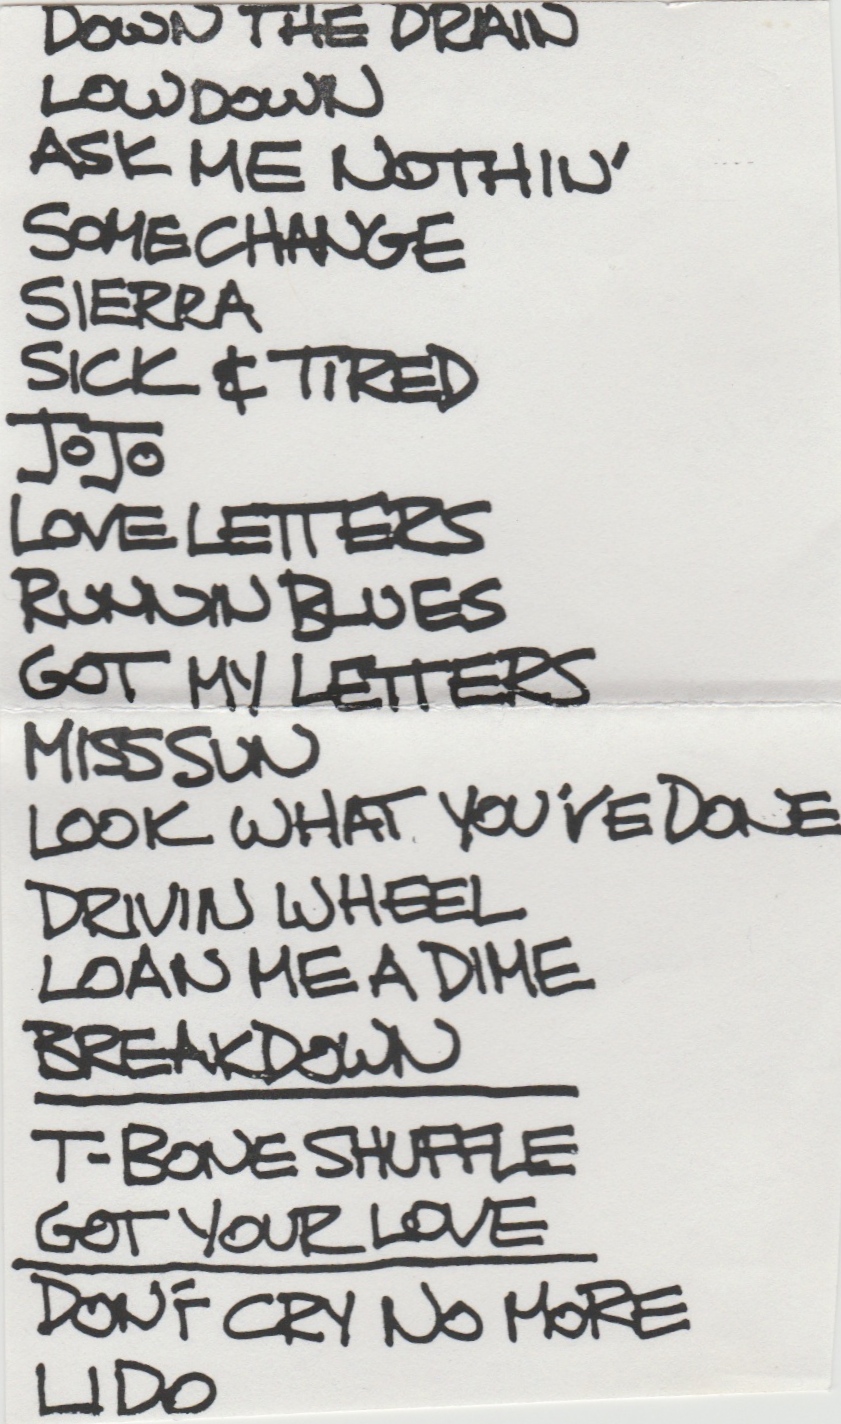 DOWN THE DRAIN
LOWDOWN
ASK ME NOTHIN'
SOME CHANGE
SIERRA
SICK & TIRED
JOJO
LOVE LETTERS
RUNNIN BLUES
GOT MY LETTERS
MISS SUN
LOOK WHAT YOU'VE DONE
DRIVIN WHEEL
LOAN ME A DIME
BREAKDOWN
T-BONE SHUFFLE
GOT YOUR LOVE
DON'T CRY NO MORE
LIDO